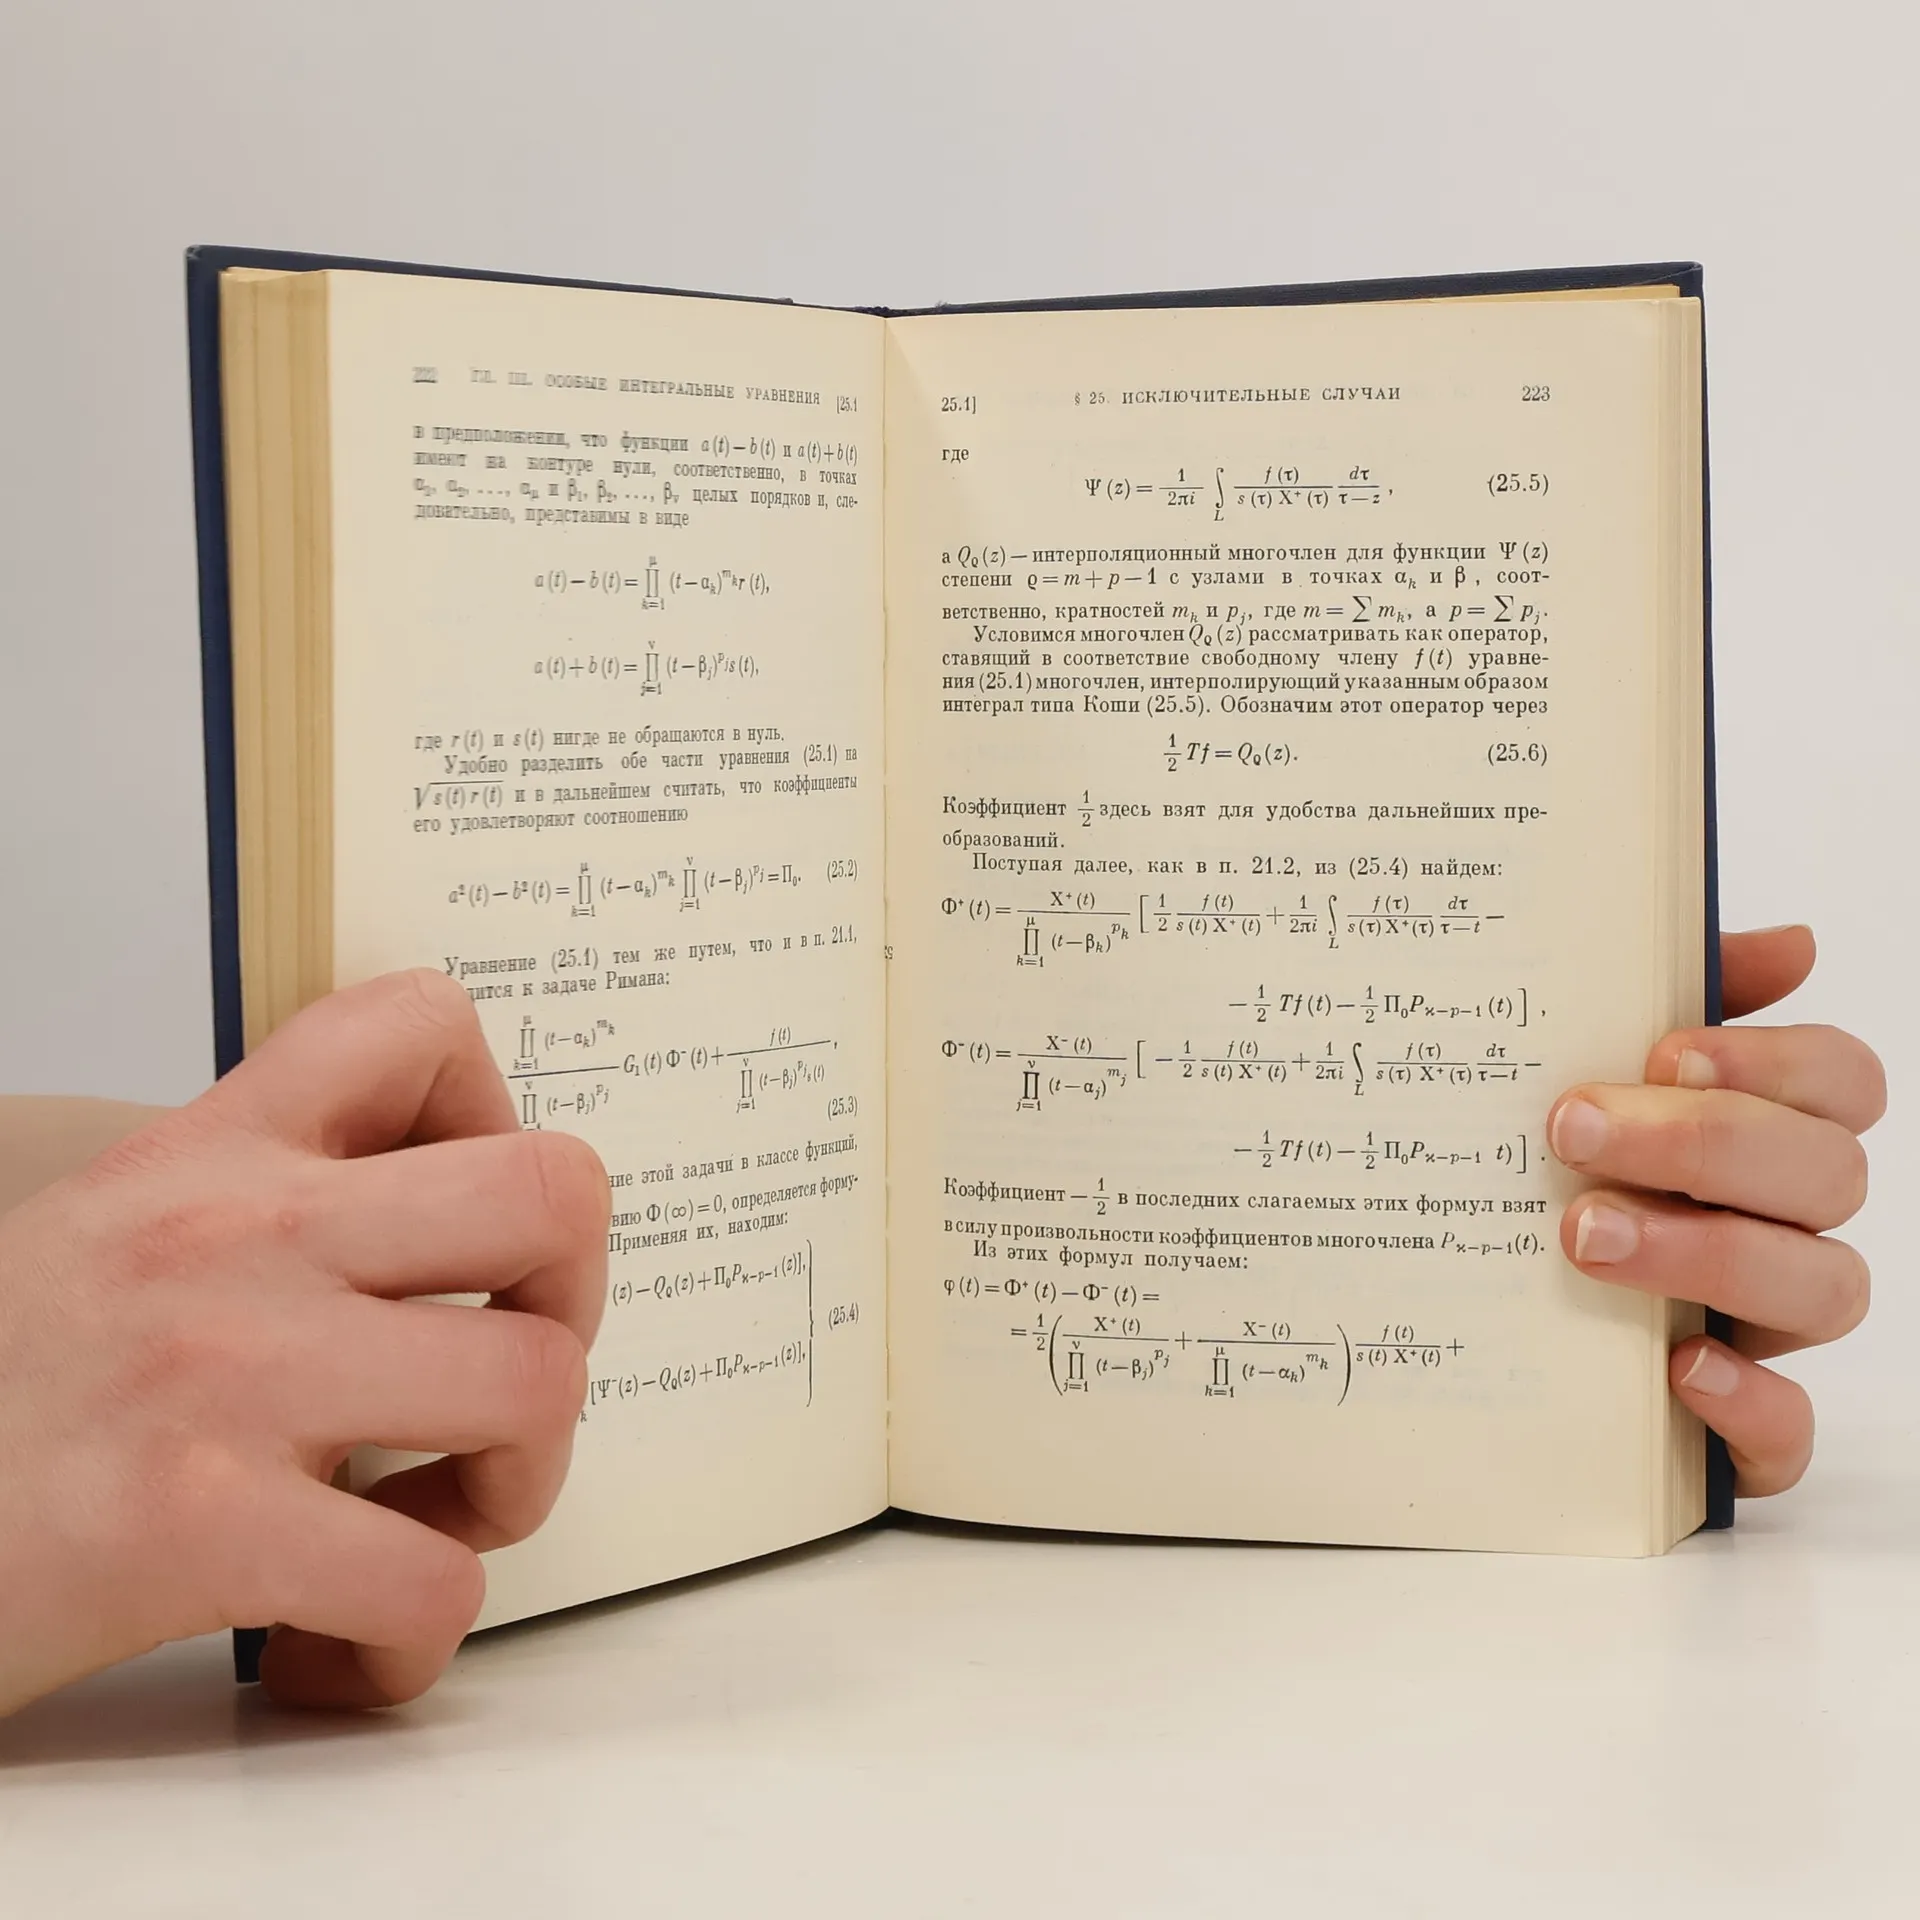 222 ГЛ. III. ОСОБЫЕ ИНТЕГРАЛЬНЫЕ УРАВНЕНИЯ [25.1
в предположении, что функции a(t)−b(t) и a(t)+b(t)
имеют на контуре нули, соответственно, в точках
α₁, α₂, ..., α_μ и β₁, β₂, ..., β_ν целых порядков и, сле-
довательно, представимы в виде
a(t)−b(t)=∏_{k=1}^{μ} (t−α_k)^{m_k} r(t),
a(t)+b(t)=∏_{j=1}^{ν} (t−β_j)^{p_j} s(t),
где r(t) и s(t) нигде не обращаются в нуль.
Удобно разделить обе части уравнения (25.1) на
√(s(t) r(t)) и в дальнейшем считать, что коэффициенты
его удовлетворяют соотношению
a²(t)−b²(t)=∏_{k=1}^{μ} (t−α_k)^{m_k} ∏_{j=1}^{ν} (t−β_j)^{p_j}=Π₀. (25.2)
Уравнение (25.1) тем же путем, что и в п. 21.1,
дится к задаче Римана:
∏_{k=1}^{μ} (t−α_k)^{m_k} / ∏^{ν} (t−β_j)^{p_j} G₁(t) Φ⁻(t) + f(t) / ∏_{j=1}^{ν} (t−β_j)^{p_j} s(t), (25.3)
ние этой задачи в классе функций,
вию Φ(∞)=0, определяется форму-
Применяя их, находим:
(z)−Q_ϱ(z)+Π₀P_{ϰ−p−1}(z)],
(25.4)
[Ψ⁻(z)−Q_ϱ(z)+Π₀P_{ϰ−p−1}(z)],
25.1] § 25. ИСКЛЮЧИТЕЛЬНЫЕ СЛУЧАИ 223
где
Ψ(z)= 1/(2πi) ∫_L f(τ)/(s(τ) X⁺(τ)) dτ/(τ−z), (25.5)
а Q_ϱ(z)—интерполяционный многочлен для функции Ψ(z)
степени ϱ=m+p−1 с узлами в точках α_k и β , соот-
ветственно, кратностей m_k и p_j, где m=∑m_k, а p=∑p_j.
Условимся многочлен Q_ϱ(z) рассматривать как оператор,
ставящий в соответствие свободному члену f(t) уравне-
ния (25.1) многочлен, интерполирующий указанным образом
интеграл типа Коши (25.5). Обозначим этот оператор через
1/2 Tf=Q_ϱ(z). (25.6)
Коэффициент 1/2 здесь взят для удобства дальнейших пре-
образований.
Поступая далее, как в п. 21.2, из (25.4) найдем:
Φ⁺(t)= X⁺(t) / ∏_{k=1}^{μ} (t−β_k)^{p_k} [ 1/2 f(t)/(s(t) X⁺(t)) + 1/(2πi) ∫_L f(τ)/(s(τ) X⁺(τ)) dτ/(τ−t) −
− 1/2 Tf(t) − 1/2 Π₀P_{ϰ−p−1}(t) ],
Φ⁻(t)= X⁻(t) / ∏_{j=1}^{ν} (t−α_j)^{m_j} [ − 1/2 f(t)/(s(t) X⁺(t)) + 1/(2πi) ∫_L f(τ)/(s(τ) X⁺(τ)) dτ/(τ−t) −
− 1/2 Tf(t) − 1/2 Π₀P_{ϰ−p−1} t) ].
Коэффициент − 1/2 в последних слагаемых этих формул взят
в силу произвольности коэффициентов многочлена P_{ϰ−p−1}(t).
Из этих формул получаем:
φ(t)=Φ⁺(t)−Φ⁻(t)=
= 1/2 ( X⁺(t) / ∏_{j=1}^{ν} (t−β_j)^{p_j} + X⁻(t) / ∏_{k=1}^{μ} (t−α_k)^{m_k} ) f(t)/(s(t) X⁺(t)) +